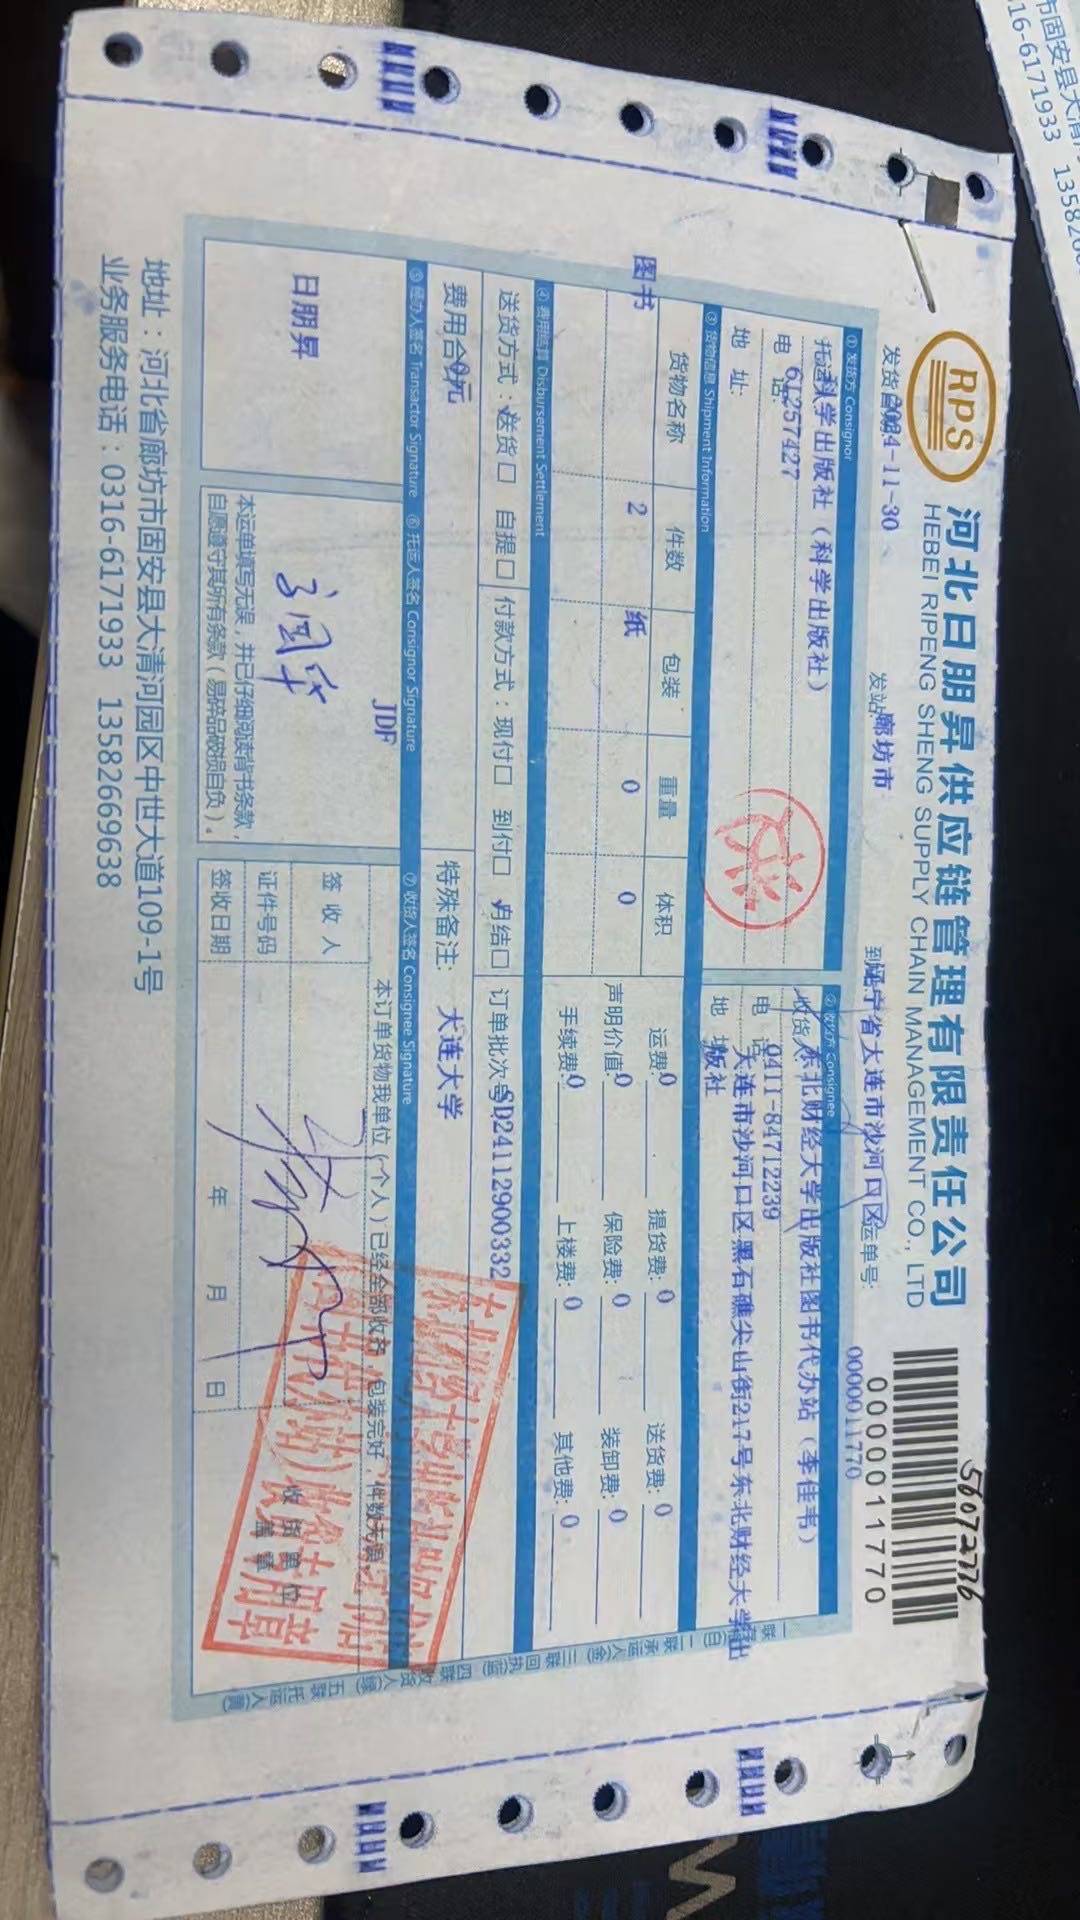 RPS
河北日朋昇供应链管理有限责任公司
HEBEI RIPENG SHENG SUPPLY CHAIN MANAGEMENT CO., LTD
56072776
0000011770
0000011770
发货日期:2024-11-30
发站:廊坊市
到站:辽宁省大连市沙河口区
运单号:
① 发货方 Consignor
托运人:科学出版社(科学出版社)
电 话:61257427
地 址:
② 收货方 Consignee
收货人:东北财经大学出版社图书代办站(李佳韦)
电 话:0411-84712239
地 址:大连市沙河口区黑石礁尖山街217号东北财经大学出版社
③ 货物信息 Shipment Information
货物名称 件数 包装 重量 体积
图书 2 纸 0 0
运费:0 提货费:0 送货费:0
声明价值:0 保险费:0 装卸费:0
手续费:0 上楼费:0 其他费:0
④ 费用结算 Disbursement Settlement
送货方式:送货 自提 付款方式:现付 到付 月结 订单批次号:SD241129000332
费用合计:0元
特殊备注: 大连大学
⑤ 经办人签名 Transactor Signature
⑥ 托运人签名 Consignor Signature
⑦ 收货人签名 Consignee Signature
日朋昇
JDF
本运单填写无误,并已仔细阅读背书条款
自愿遵守其所有条款(易碎品破损自负)。
本订单货物我单位(个人)已经全部收各,包装完好,件数无误。
签 收 人
证件号码
签收日期 年 月 日
收货单位
盖章
地址:河北省廊坊市固安县大清河园区中世大道109-1号
业务服务电话:0316-6171933 13582669638
市固安县大清
16-6171933 13582669